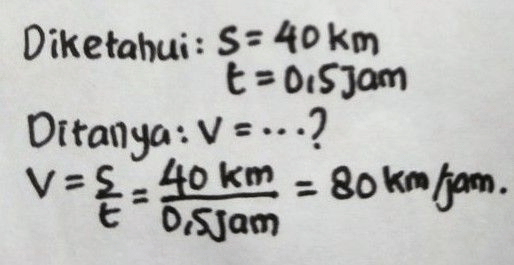 Diketahui: S = 40 km
t = 0,5 jam
Ditanya: V = ...?
V = S/t = 40 km/0,5 jam = 80 km/jam.